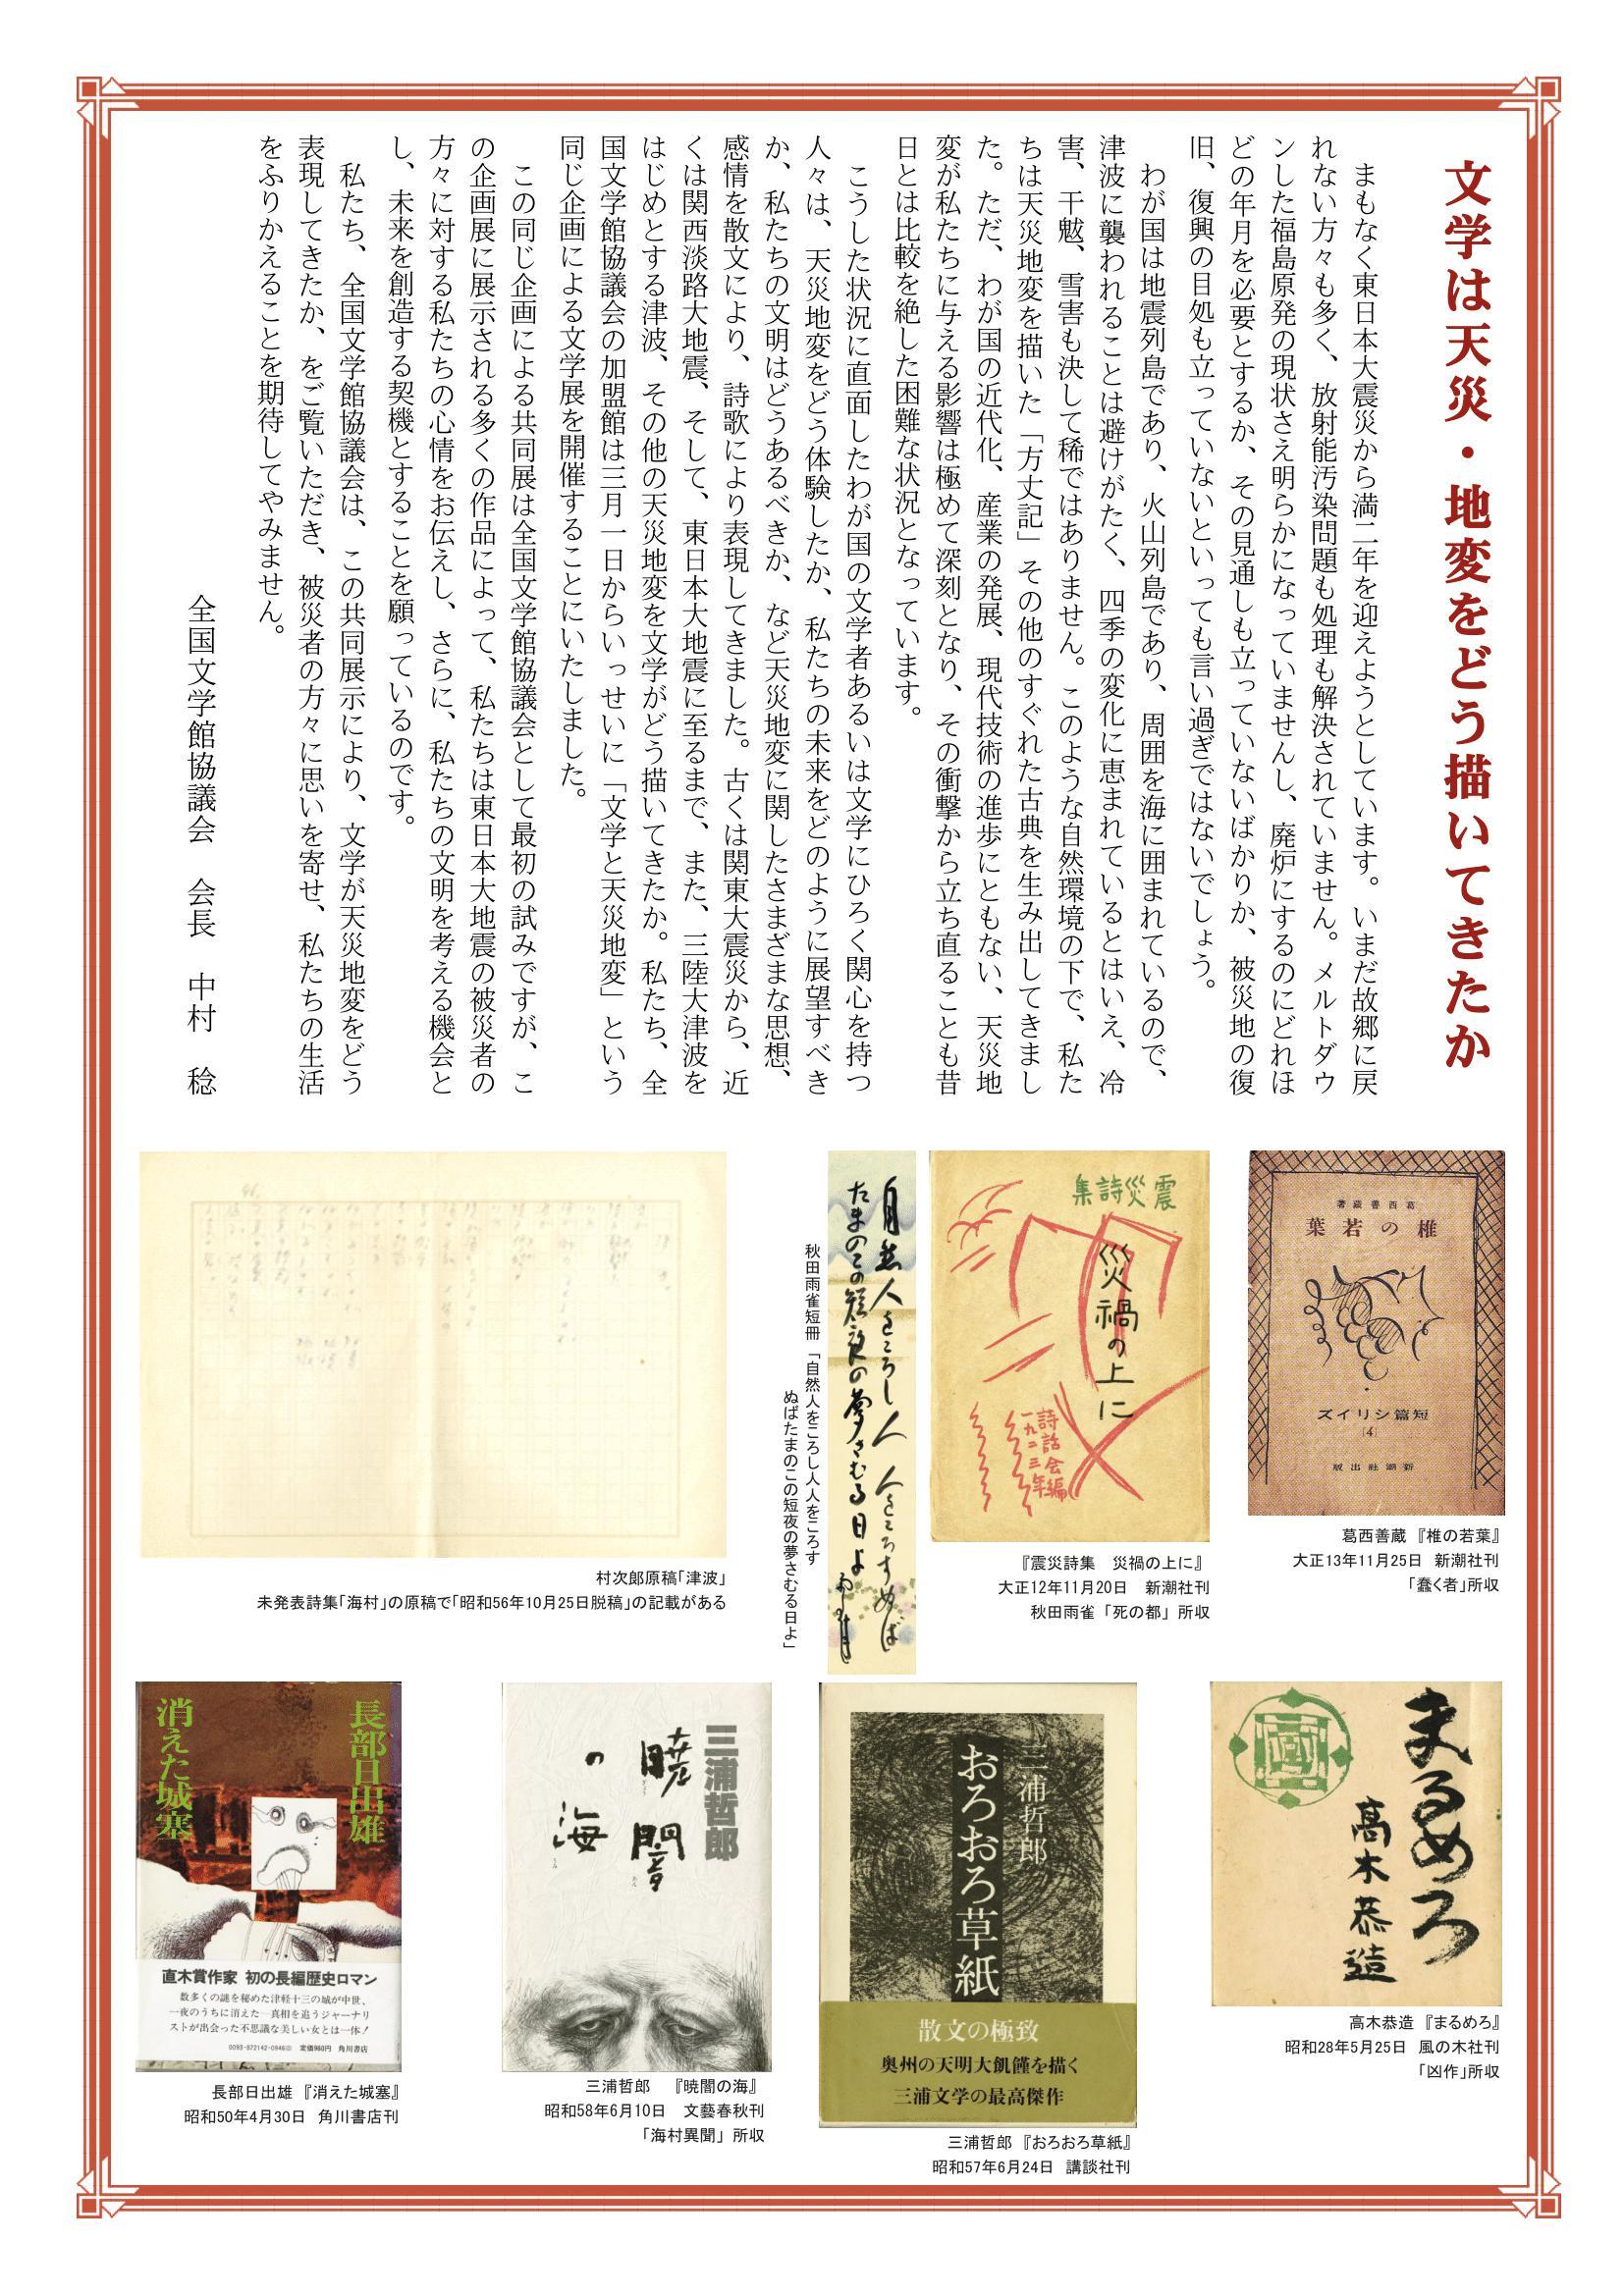 文学は天災・地変をどう描いてきたか
まもなく東日本大震災から満二年を迎えようとしています。いまだ故郷に戻
れない方々も多く、放射能汚染問題も処理も解決されていません。メルトダウ
ンした福島原発の現状さえ明らかになっていませんし、廃炉にするのにどれほ
どの年月を必要とするか、その見通しも立っていないばかりか、被災地の復
旧、復興の目処も立っていないといっても言い過ぎではないでしょう。
わが国は地震列島であり、火山列島であり、周囲を海に囲まれているので、
津波に襲われることは避けがたく、四季の変化に恵まれているとはいえ、冷
害、干魃、雪害も決して稀ではありません。このような自然環境の下で、私た
ちは天災地変を描いた「方丈記」その他のすぐれた古典を生み出してきまし
た。ただ、わが国の近代化、産業の発展、現代技術の進歩にともない、天災地
変が私たちに与える影響は極めて深刻となり、その衝撃から立ち直ることも昔
日とは比較を絶した困難な状況となっています。
こうした状況に直面したわが国の文学者あるいは文学にひろく関心を持つ
人々は、天災地変をどう体験したか、私たちの未来をどのように展望すべき
か、私たちの文明はどうあるべきか、など天災地変に関したさまざまな思想、
感情を散文により、詩歌により表現してきました。古くは関東大震災から、近
くは関西淡路大地震、そして、東日本大地震に至るまで、また、三陸大津波を
はじめとする津波、その他の天災地変を文学がどう描いてきたか。私たち、全
国文学館協議会の加盟館は三月一日からいっせいに「文学と天災地変」という
同じ企画による文学展を開催することにいたしました。
この同じ企画による共同展は全国文学館協議会として最初の試みですが、こ
の企画展に展示される多くの作品によって、私たちは東日本大地震の被災者の
方々に対する私たちの心情をお伝えし、さらに、私たちの文明を考える機会と
し、未来を創造する契機とすることを願っているのです。
私たち、全国文学館協議会は、この共同展示により、文学が天災地変をどう
表現してきたか、をご覧いただき、被災者の方々に思いを寄せ、私たちの生活
をふりかえることを期待してやみません。
全国文学館協議会　会長　中村　稔
著蔵善西葛
葉若の椎
ズイリシ篇短
[4]
版出社潮新
葛西善蔵『椎の若葉』
大正13年11月25日 新潮社刊
「蠢く者」所収
集詩災震
災禍の上に
詩話会編
一九二三年
『震災詩集　災禍の上に』
大正12年11月20日　新潮社刊
秋田雨雀「死の都」所収
自然人をころし人人をころすぬば
たまのこの短夜の夢さむる日よ
秋田雨雀短冊「自然人をころし人人をころす
ぬばたまのこの短夜の夢さむる日よ」
村次郎原稿「津波」
未発表詩集「海村」の原稿で「昭和56年10月25日脱稿」の記載がある
まるめろ
高木恭造
高木恭造『まるめろ』
昭和28年5月25日 風の木社刊
「凶作」所収
三浦哲郎
おろおろ草紙
散文の極致
奥州の天明大飢饉を描く
三浦文学の最高傑作
三浦哲郎『おろおろ草紙』
昭和57年6月24日 講談社刊
三浦哲郎
暁闇
の海
三浦哲郎　『暁闇の海』
昭和58年6月10日　文藝春秋刊
「海村異聞」所収
長部日出雄
消えた城塞
直木賞作家 初の長編歴史ロマン
数多くの謎を秘めた津軽十三の城が中世、
一夜のうちに消えた─真相を追うジャーナリ
ストが出会った不思議な美しい女とは一体！
0093-872142-0946(0) 定価960円 角川書店
長部日出雄『消えた城塞』
昭和50年4月30日 角川書店刊